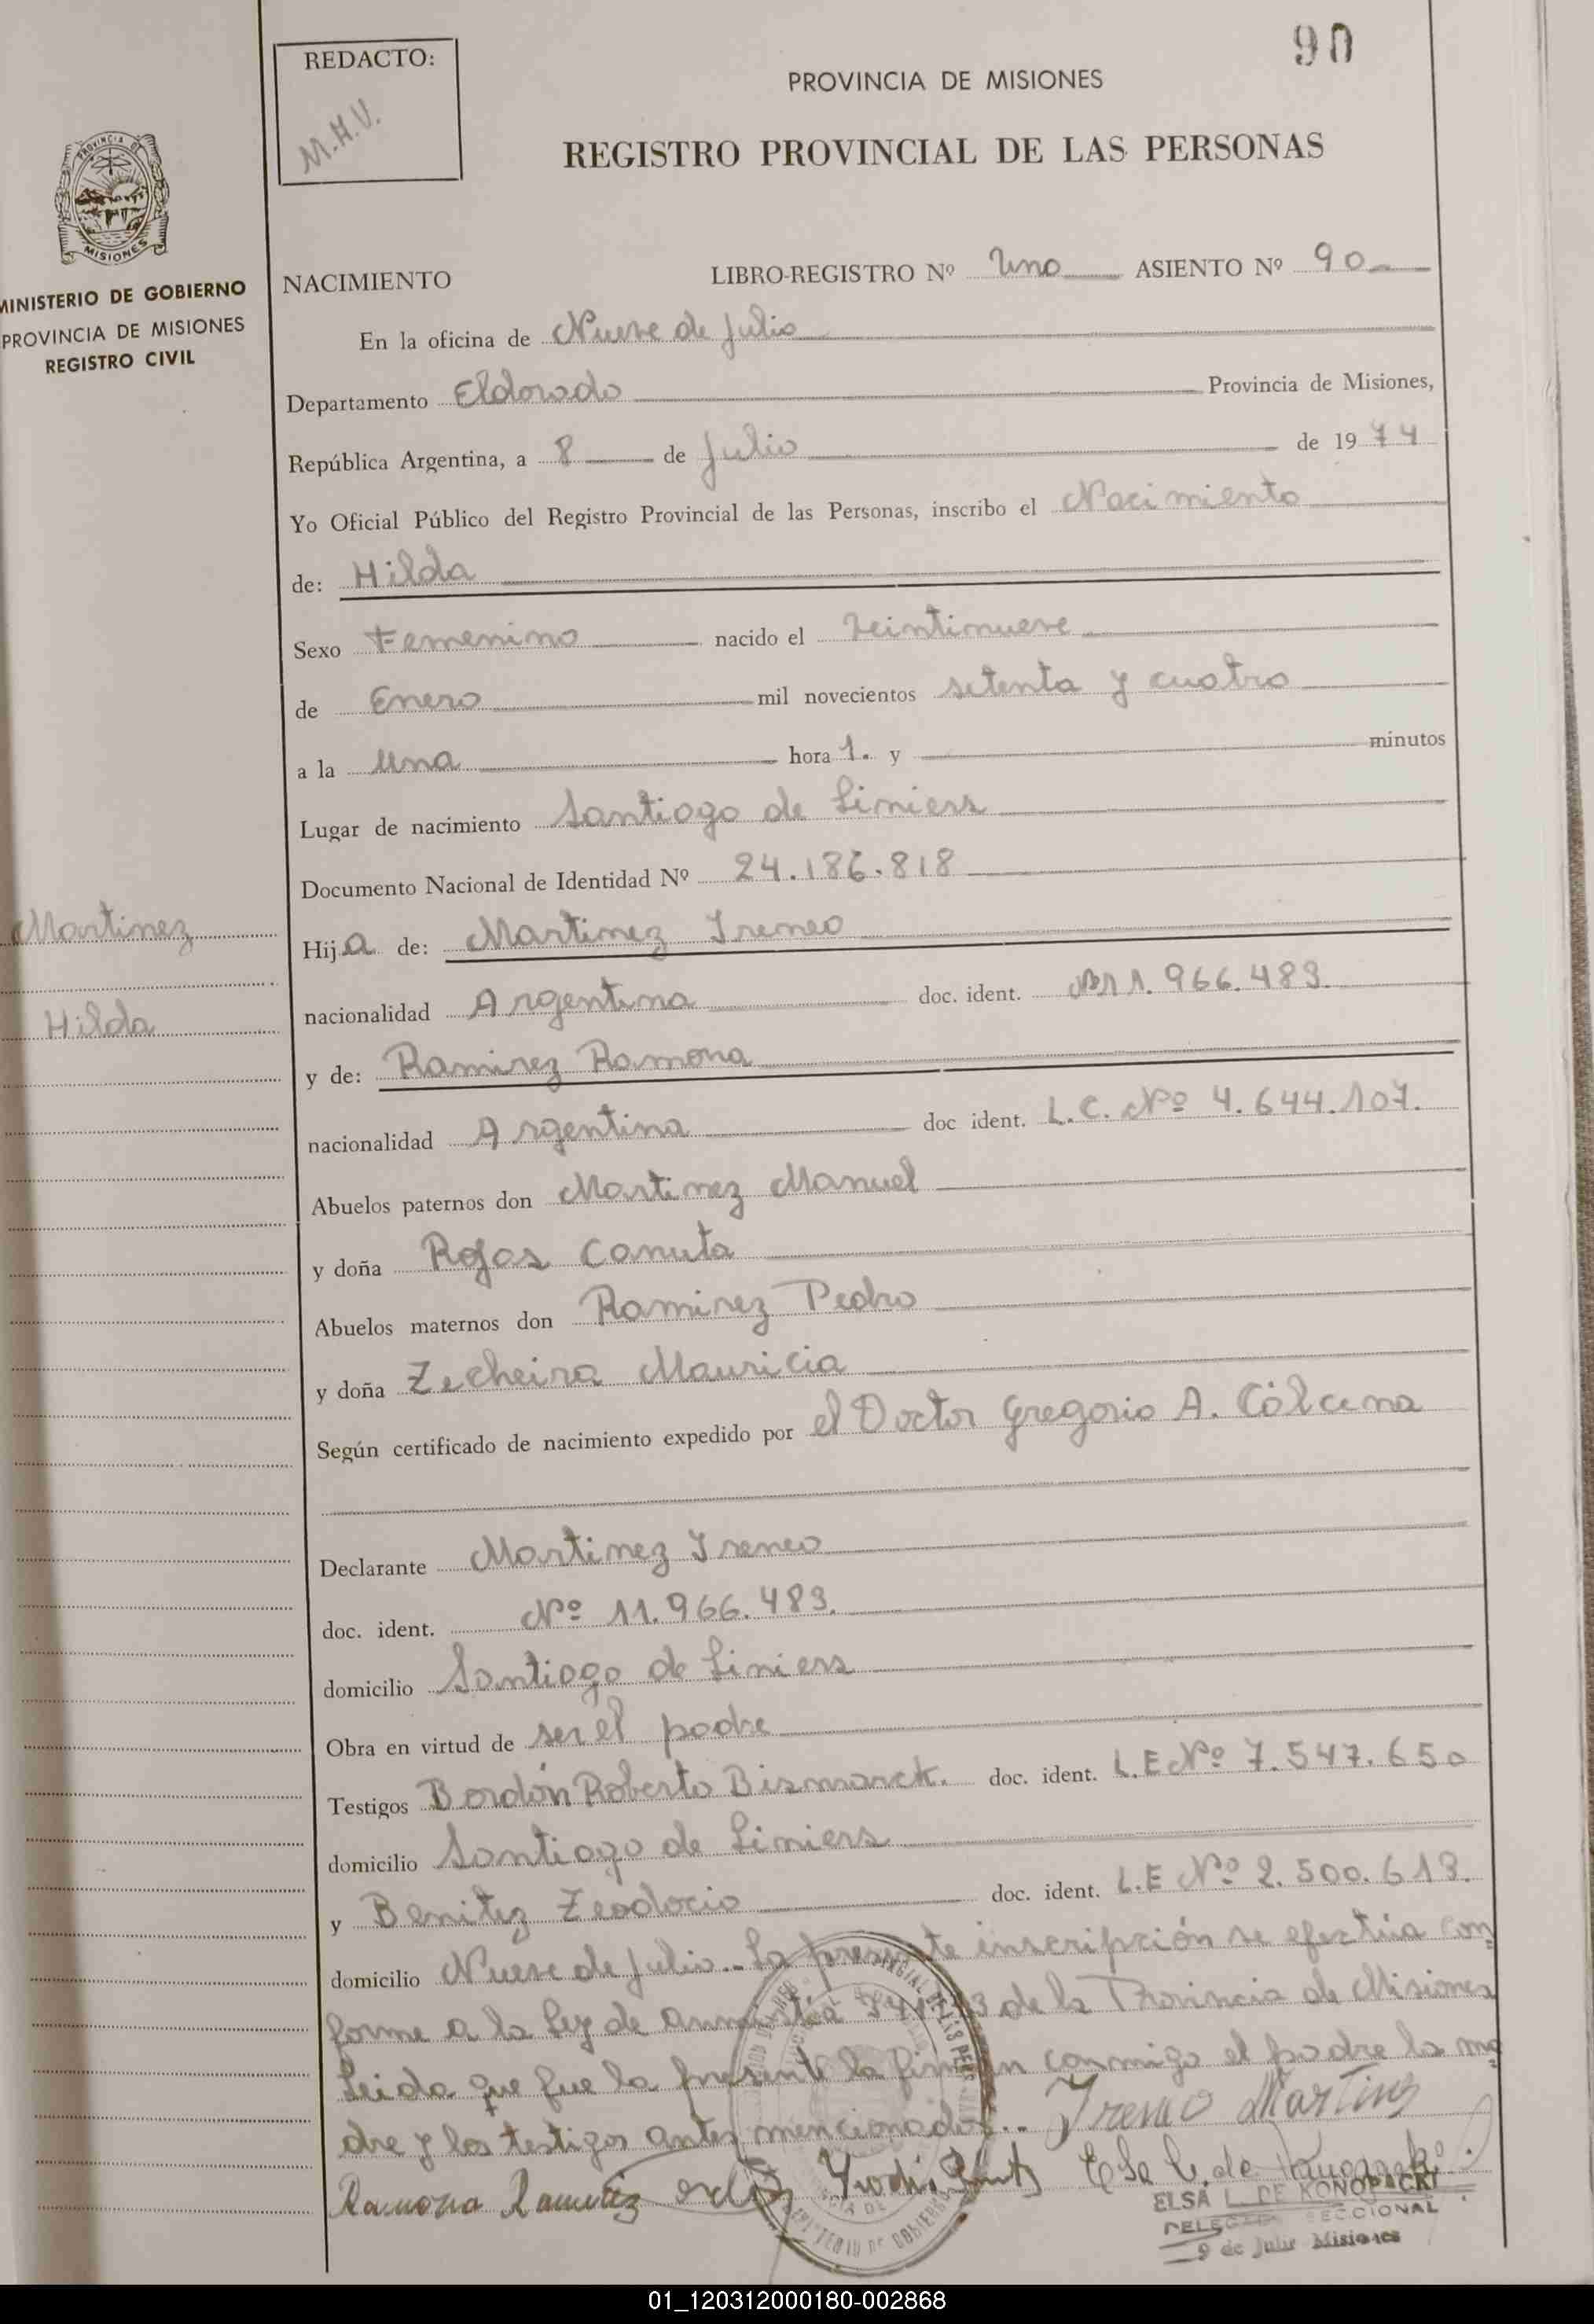 90
REDACTO:
M.H.V.
PROVINCIA DE MISIONES
REGISTRO PROVINCIAL DE LAS PERSONAS
PROVINCIA DE
MISIONES
MINISTERIO DE GOBIERNO
PROVINCIA DE MISIONES
REGISTRO CIVIL
NACIMIENTO LIBRO-REGISTRO Nº Uno ASIENTO Nº 90
En la oficina de Nueve de Julio
Departamento Eldorado Provincia de Misiones,
República Argentina, a 8 de Julio de 1974
Yo Oficial Público del Registro Provincial de las Personas, inscribo el Nacimiento
de: Hilda
Sexo Femenino nacido el Veintinueve
de Enero mil novecientos setenta y cuatro
a la una hora 1. y minutos
Lugar de nacimiento Santiago de Liniers
Documento Nacional de Identidad Nº 24.186.818
Martinez
Hilda
Hija de: Martinez Ireneo
nacionalidad Argentina doc. ident. 11.966.483.
y de: Ramirez Ramona
nacionalidad Argentina doc ident. L.C. Nº 4.644.107.
Abuelos paternos don Martinez Manuel
y doña Rojas Canuta
Abuelos maternos don Ramirez Pedro
y doña Zecheira Mauricia
Según certificado de nacimiento expedido por el Doctor Gregorio A. Cólcena
Declarante Martinez Ireneo
doc. ident. Nº 11.966.483.
domicilio Santiago de Liniers
Obra en virtud de ser el padre
Testigos Bordón Roberto Bismarck. doc. ident. L.E Nº 7.547.650
domicilio Santiago de Liniers
y Benitez Teodocio doc. ident. L.E Nº 2.500.613.
domicilio Nueve de Julio.. La presente inscripción se efectúa con
forme a la Ley de amnistía de la Provincia de Misiones
Leida que fue la presente la firman conmigo el padre la ma
dre y los testigos antes mencionados..
Ireneo Martinez
Ramona Ramirez
ELSA L. DE KONOPACKI
DELEGADA SECCIONAL
9 de Julio Misiones
01_120312000180-002868